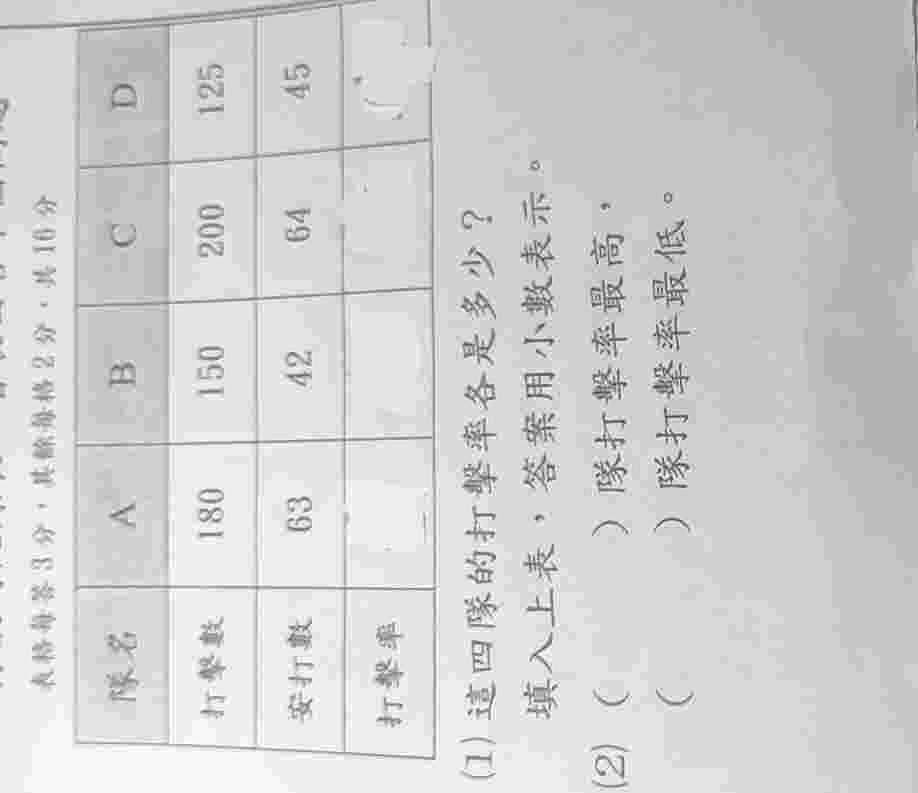 表格每答3分，其餘每格2分，共16分
隊名 A B C D
打擊數 180 150 200 125
安打數 63 42 64 45
打擊率
(1) 這四隊的打擊率各是多少？
填入上表，答案用小數表示。
(2) （　　）隊打擊率最高，
（　　）隊打擊率最低。